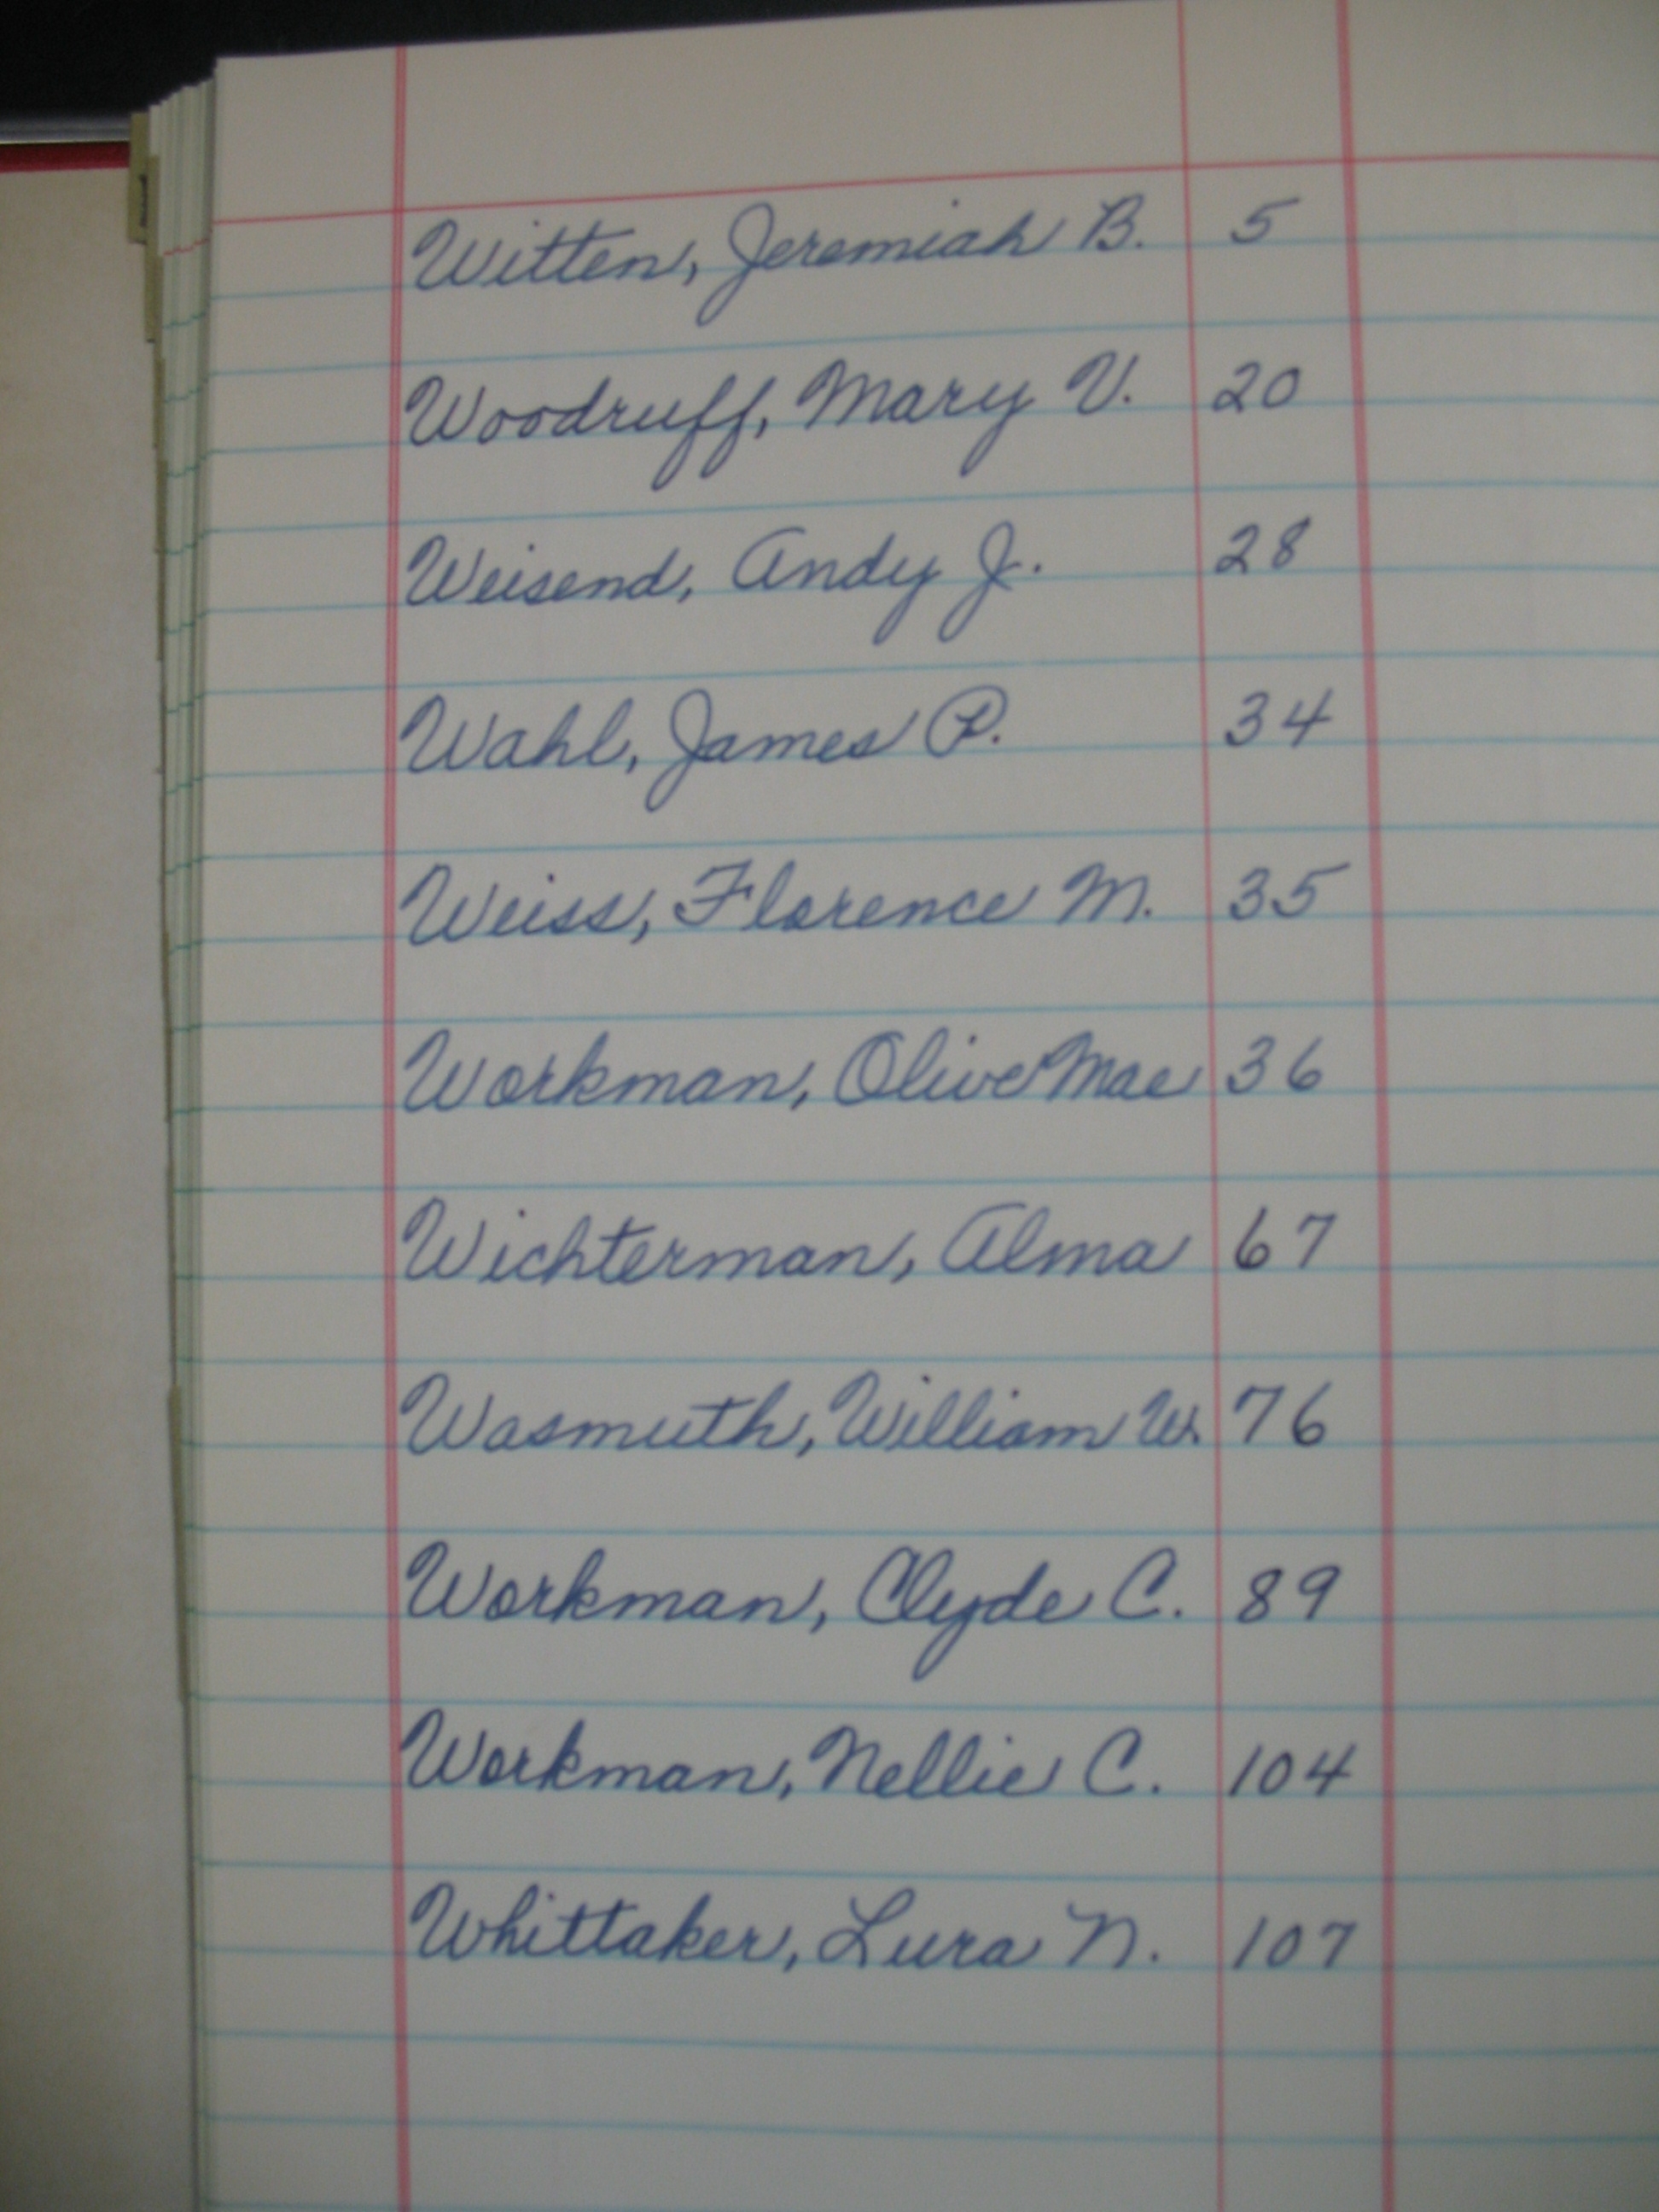 Witten, Jeremiah B. 5
Woodruff, Mary V. 20
Weisend, Andy J. 28
Wahl, James P. 34
Weiss, Florence M. 35
Workman, Olive Mae 36
Wichterman, Alma 67
Wasmuth, William W. 76
Workman, Clyde C. 89
Workman, Nellie C. 104
Whittaker, Lura N. 107